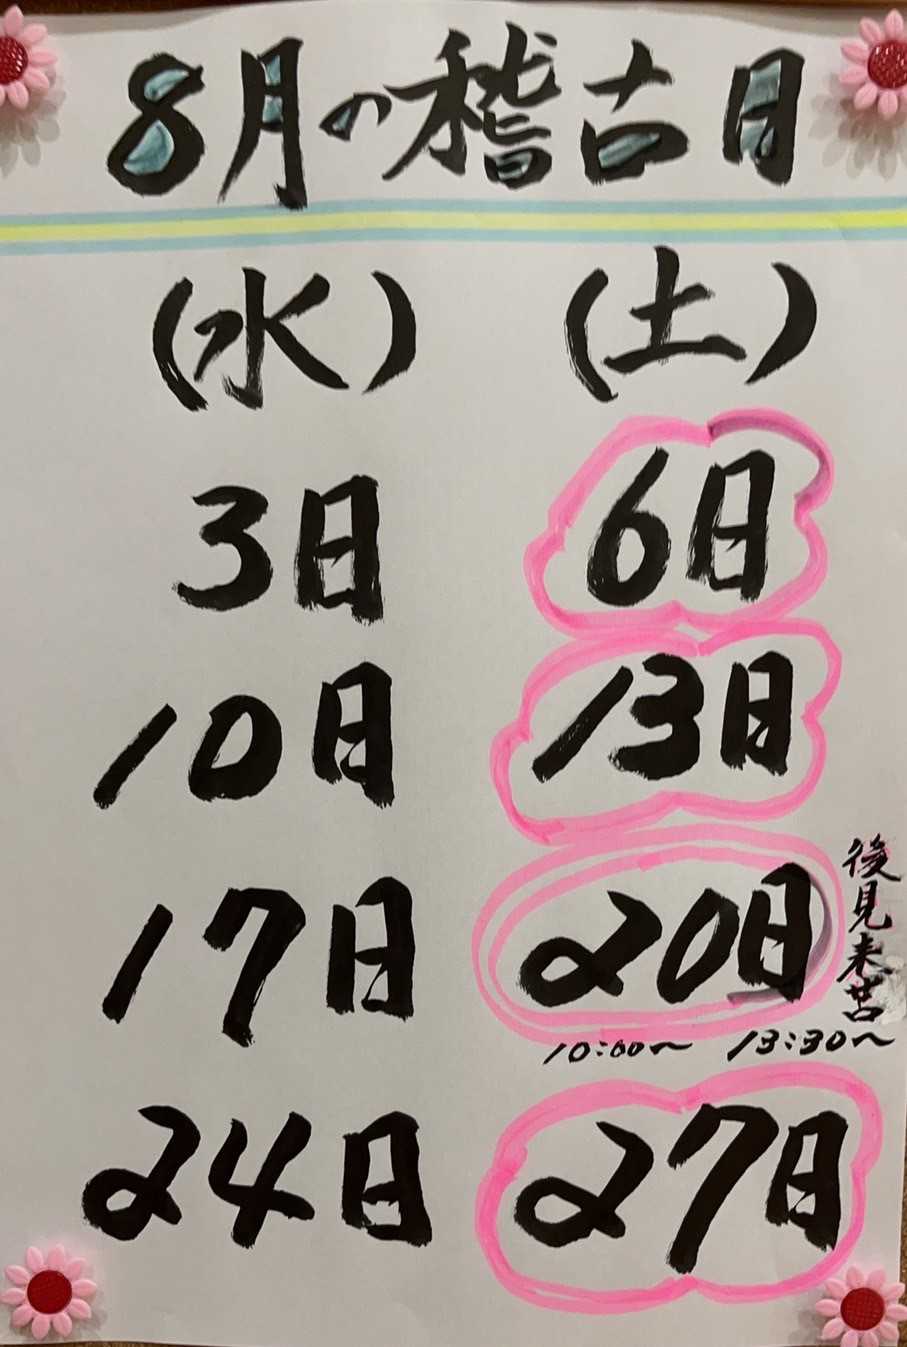 8月の稽古日
(水) (土)
3日 6日
10日 13日
17日 20日
後見来
10:00～ 13:30～
24日 27日